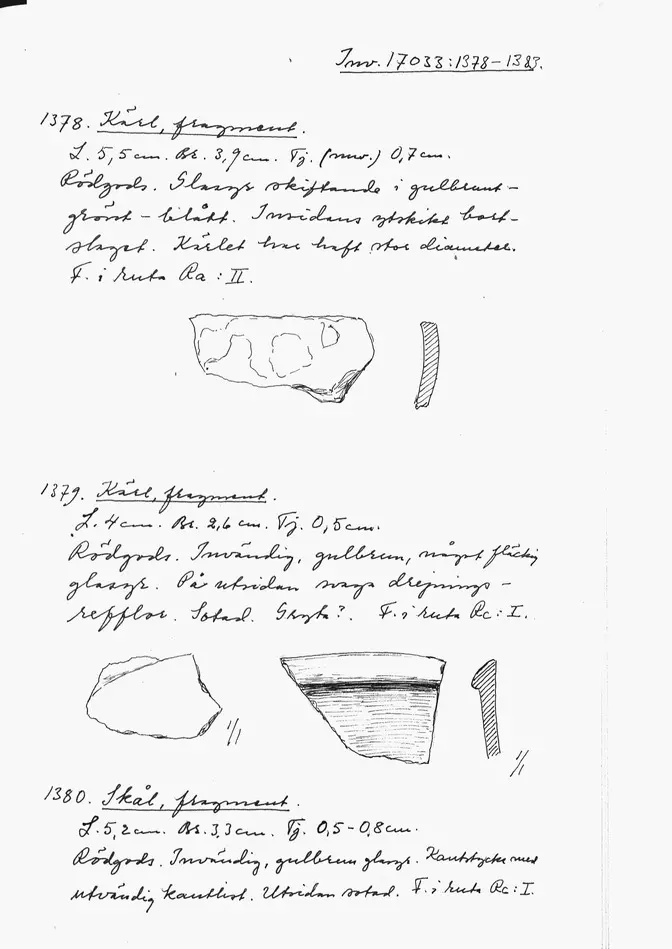 Inv. 17033:1378-1383.
1378. Kärl, fragment.
L. 5,5 cm. Br. 3,9 cm. Tj. (nuv.) 0,7 cm.
Rödgods. Glasyr skiftande i gulbrunt-
grönt - blått. Insidans ytskikt bort-
slaget. Kärlet har haft stor diameter.
F. i ruta Ra : II.
1379. Kärl, fragment.
L. 4 cm. Br. 2,6 cm. Tj. 0,5 cm.
Rödgods. Invändig, gulbrun, något fläckig
glasyr. På utsidan svaga drejnings-
refflor. Sotad. Gryta?. F. i ruta Rc : I.
1/1
1/1
1380. Skål, fragment.
L. 5,2 cm. Br. 3,3 cm. Tj. 0,5-0,8 cm.
Rödgods. Invändig, gulbrun glasyr. Kantstycke med
utvändig kantlist. Utsidan sotad. F. i ruta Rc : I.